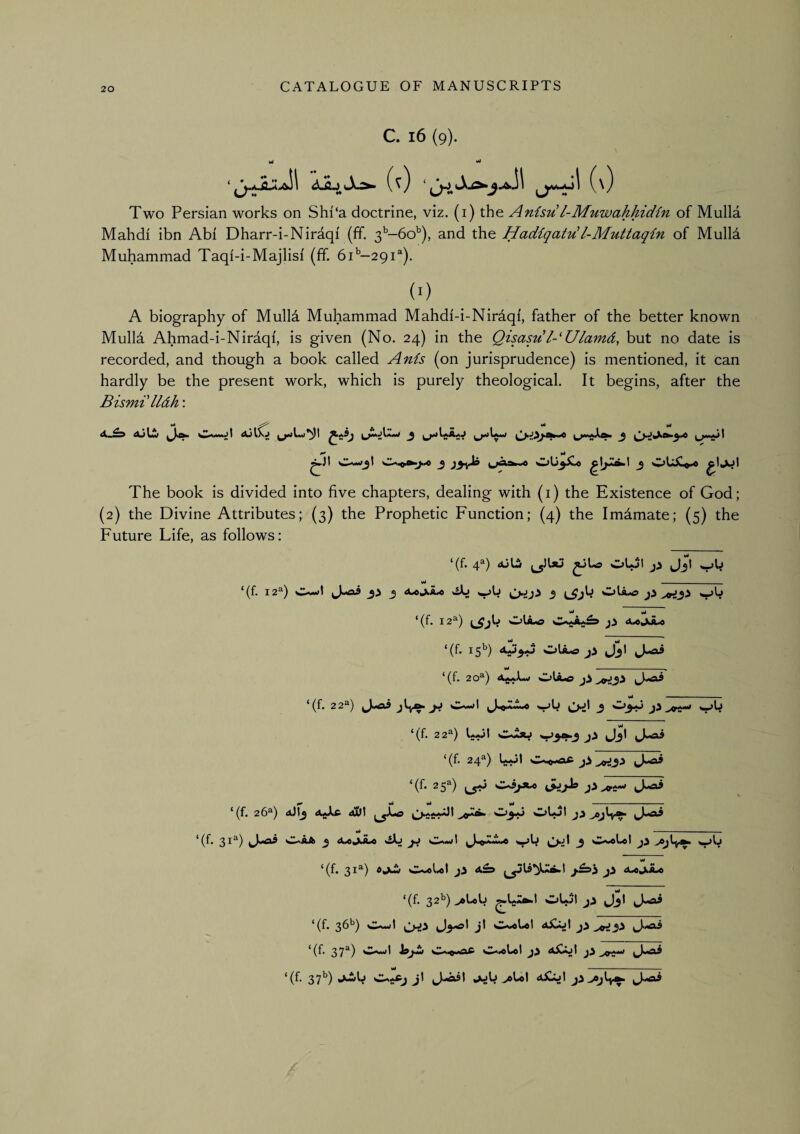 20 CATALOGUE OF MANUSCRIPTS
C. 16 (9).
(١) انيس الموحّدين، (٢) حديقة المتّقين،
Two Persian works on Shi‘a doctrine, viz. (1) the Anísu’l-Muwaḥḥidín of Mullá
Mahdí ibn Abí Dharr-i-Niráqí (ff. 3b–60b), and the Ḥadíqatu’l-Muttaqín of Mullá
Muḥammad Taqí-i-Majlisí (ff. 61b–291a).
(1)
A biography of Mullá Muḥammad Mahdí-i-Niráqí, father of the better known
Mullá Aḥmad-i-Niráqí, is given (No. 24) in the Qiṣaṣu’l-‘Ulamá, but no date is
recorded, and though a book called Anís (on jurisprudence) is mentioned, it can
hardly be the present work, which is purely theological. It begins, after the
Bismi’lláh:
انيس موحّدين و جليس مجردين سپاس بيقياس و ستايش رفيع الاساس يگانه ايست جل شانه كه
ابداع ممكنات و اختراع مكونات محض ظهور و اوست الخ
The book is divided into five chapters, dealing with (1) the Existence of God;
(2) the Divine Attributes; (3) the Prophetic Function; (4) the Imámate; (5) the
Future Life, as follows:
باب اوّل در اثبات صانع تعالى شانه (f. 4a)‘
باب دويم در صفات بارى و درين باب يك مقدّمه و دو فصل است (f. 12a)‘
مقدّمه در حقيقت صفات بارى (f. 12a)‘
فصل اوّل در صفات ثبوتيّه (f. 15b)‘
فصل دويم در صفات سلبيّه (f. 20a)‘
باب سيم در نبوّت و اين باب مشتمل است بر چهار فصل (f. 22a)‘
فصل اوّل در وجوب بعثت انبيا (f. 22a)‘
فصل دويم در عصمت انبيا (f. 24a)‘
فصل سيم در طريق معرفت نبى (f. 25a)‘
فصل چهارم در اثبات نبوّت ختم النبيّين صلّى الله عليه وآله (f. 26a)‘
باب چهارم در امامت و اين باب مشتمل است بر يك مقدّمه و هفت فصل (f. 31a)‘
مقدّمه در ذكر اختلافاتى كه در امامت شده (f. 31a)‘
فصل اوّل در اثبات احتياج بامام (f. 32b)‘
فصل دويم در اينكه امامت از اصول دين است (f. 36b)‘
فصل سيم در اينكه در امامت عصمت شرط است (f. 37a)‘
فصل چهارم در اينكه امام بايد افضل از رعيّت باشد (f. 37b)‘